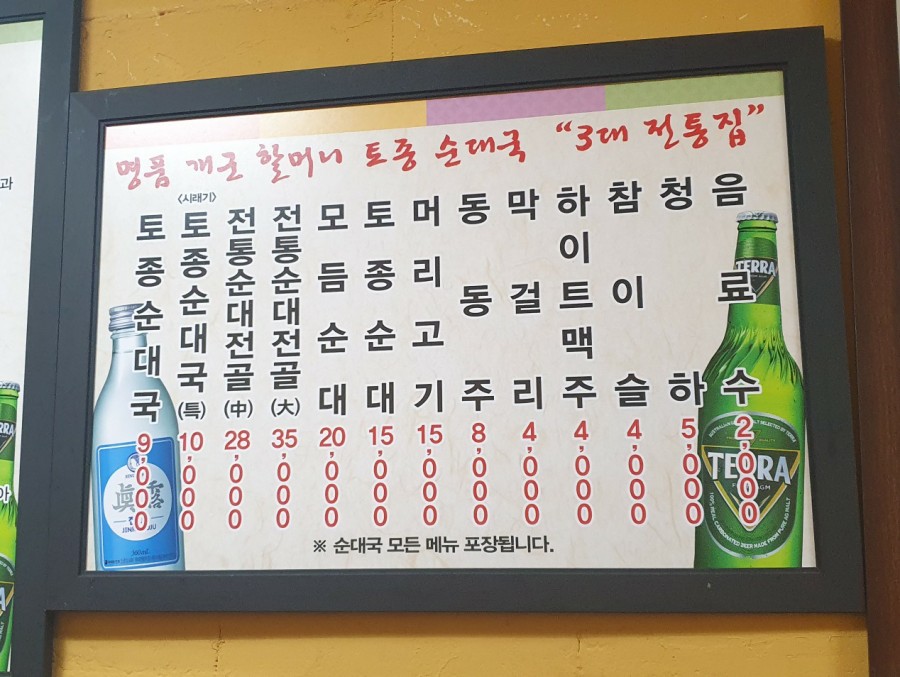 명품 개군 할머니 토종 순대국 "3대 전통집"
토종순대국 9,000
<시래기>
토종순대국(特) 10,000
전통순대전골(中) 28,000
전통순대전골(大) 35,000
모듬순대 20,000
토종순대 15,000
머리고기 15,000
동동주 8,000
막걸리 4,000
하이트맥주 4,000
참이슬 4,000
청하 5,000
음료수 2,000
※ 순대국 모든 메뉴 포장됩니다.
眞露
TERRA
TERRA
과